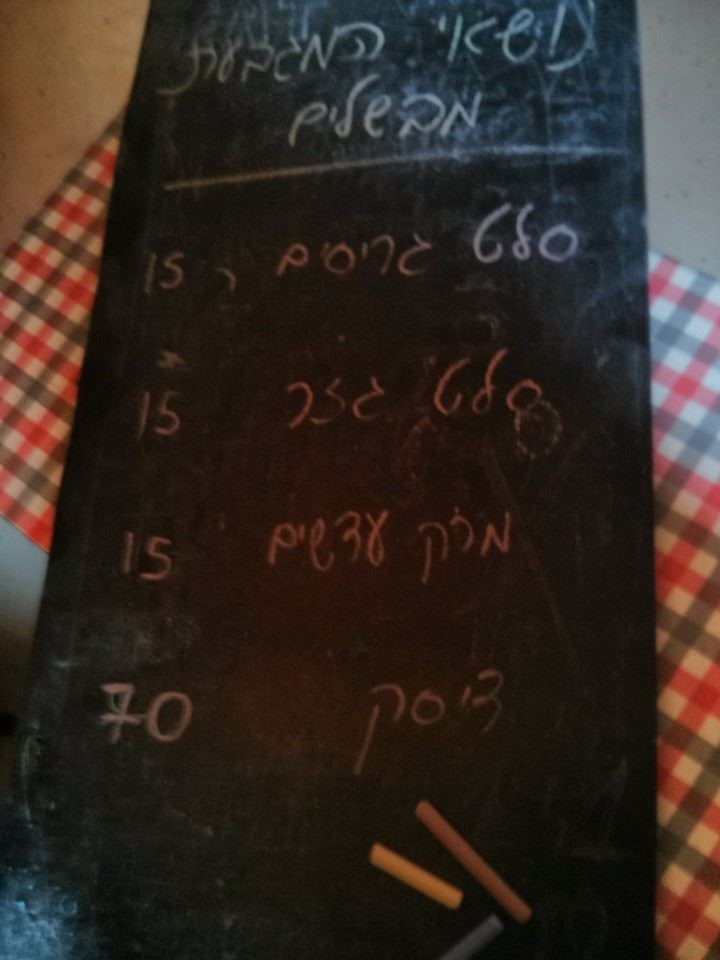 נושאי המגבעת
מבשלים
סלט גריסים 15
סלט גזר 15
מרק עדשים 15
דיסק 70